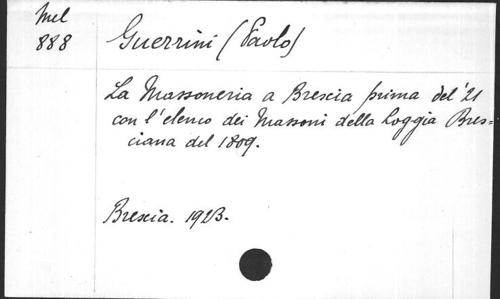 Mel
888
Guerrini (Paolo)
La Massoneria a Brescia prima del '21
con l'elenco dei Massoni della Loggia Bres=
ciana del 1809.
Brescia. 1923.